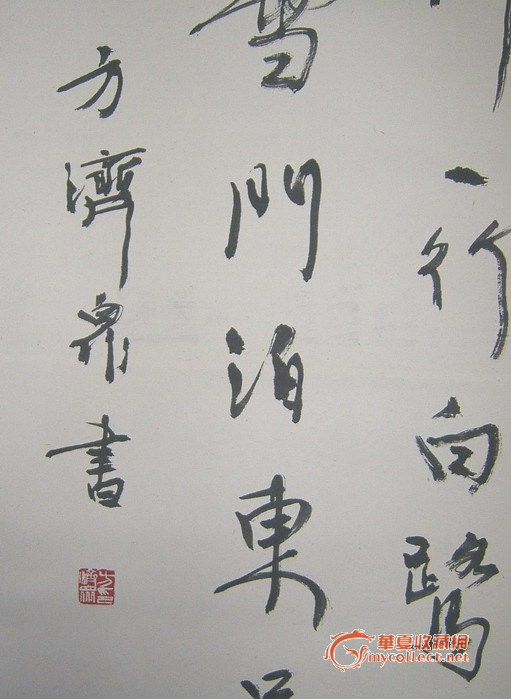 一行白鷺
雪門泊東
方濟衆書
華夏收藏網
mycollect.net